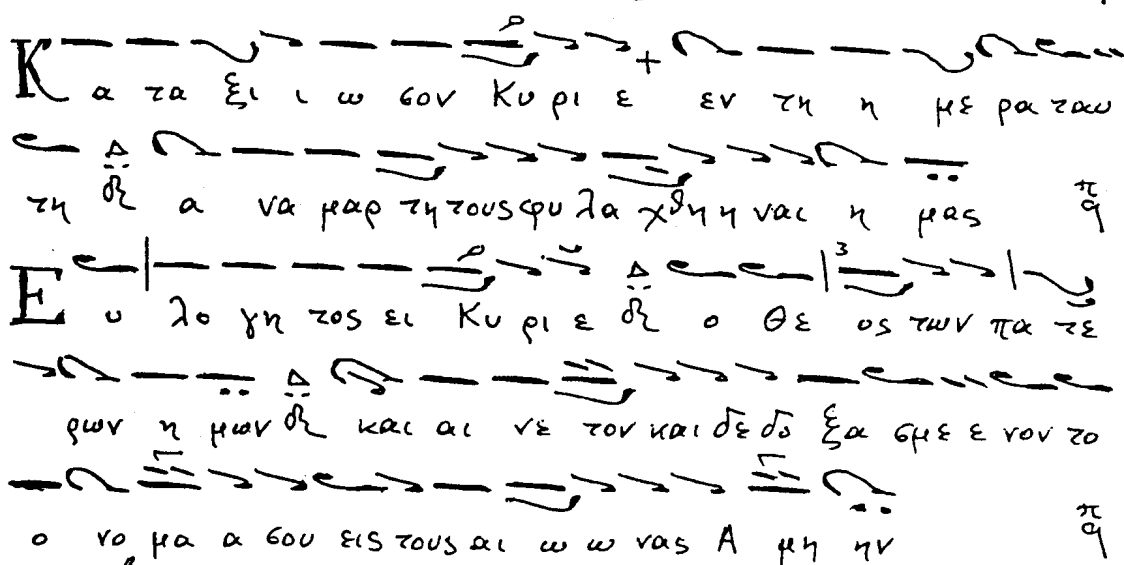 Κ α τα ξι ι ω σον Κυ ρι ε εν τη η με ρα ταυ
τη Δ α να μαρ τη τους φυ λα χθη η ναι η μας π q
Ε υ λο γη τος ει Κυ ρι ε Δ ο Θε ος των πα τε
ρων η μων Δ και αι νε τον και δε δο ξα σμε ε νον το
ο νο μα α σου εις τους αι ω ω νας Α μη ην π q